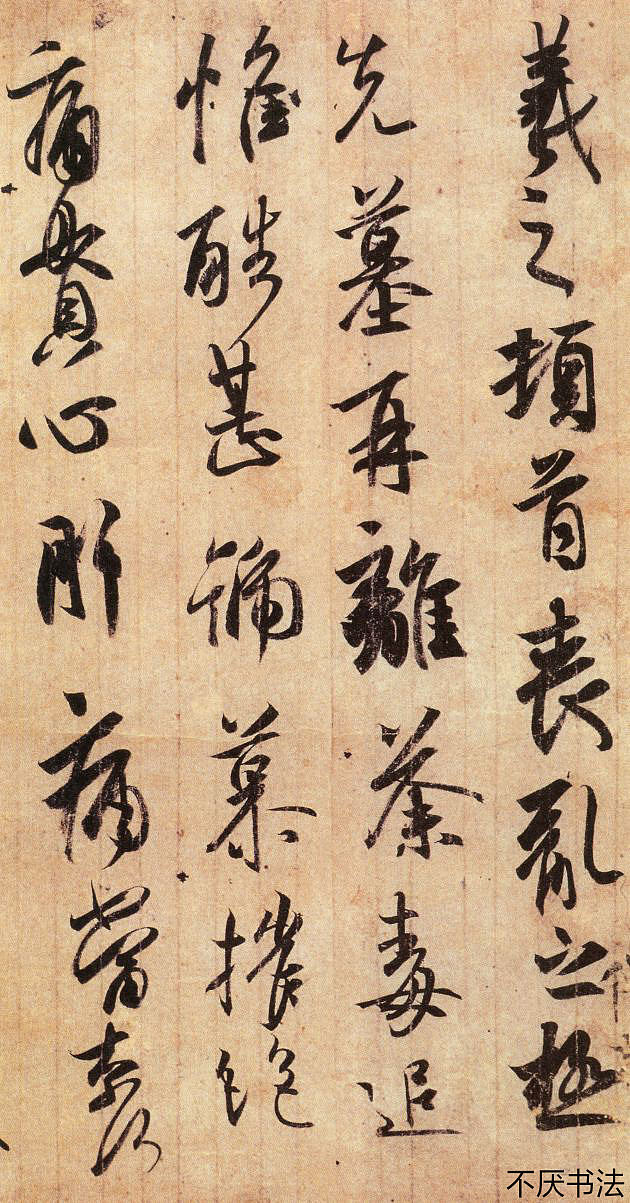 羲之頓首喪亂之極
先墓再離荼毒追
惟酷甚號慕摧絕
痛貫心肝痛當奈何
不厌书法